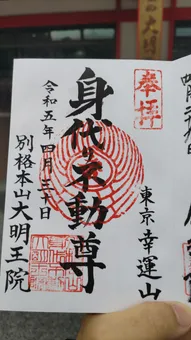 奉拝
東京幸運山
身代り不動尊
令和五年四月三十日
別格本山大明王院